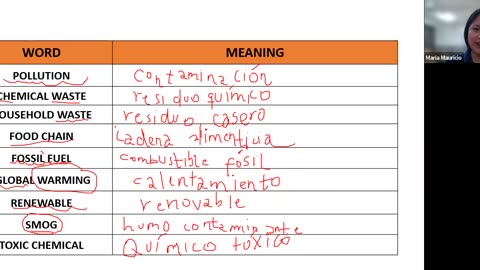 WORD MEANING
POLLUTION contaminación
CHEMICAL WASTE residuo químico
OUSEHOLD WASTE residuo casero
FOOD CHAIN cadena alimenticia
FOSSIL FUEL combustible fósil
GLOBAL WARMING calentamiento
RENEWABLE renovable
SMOG humo contaminante
TOXIC CHEMICAL QUÍMICO tóxico
Maria Mauricio